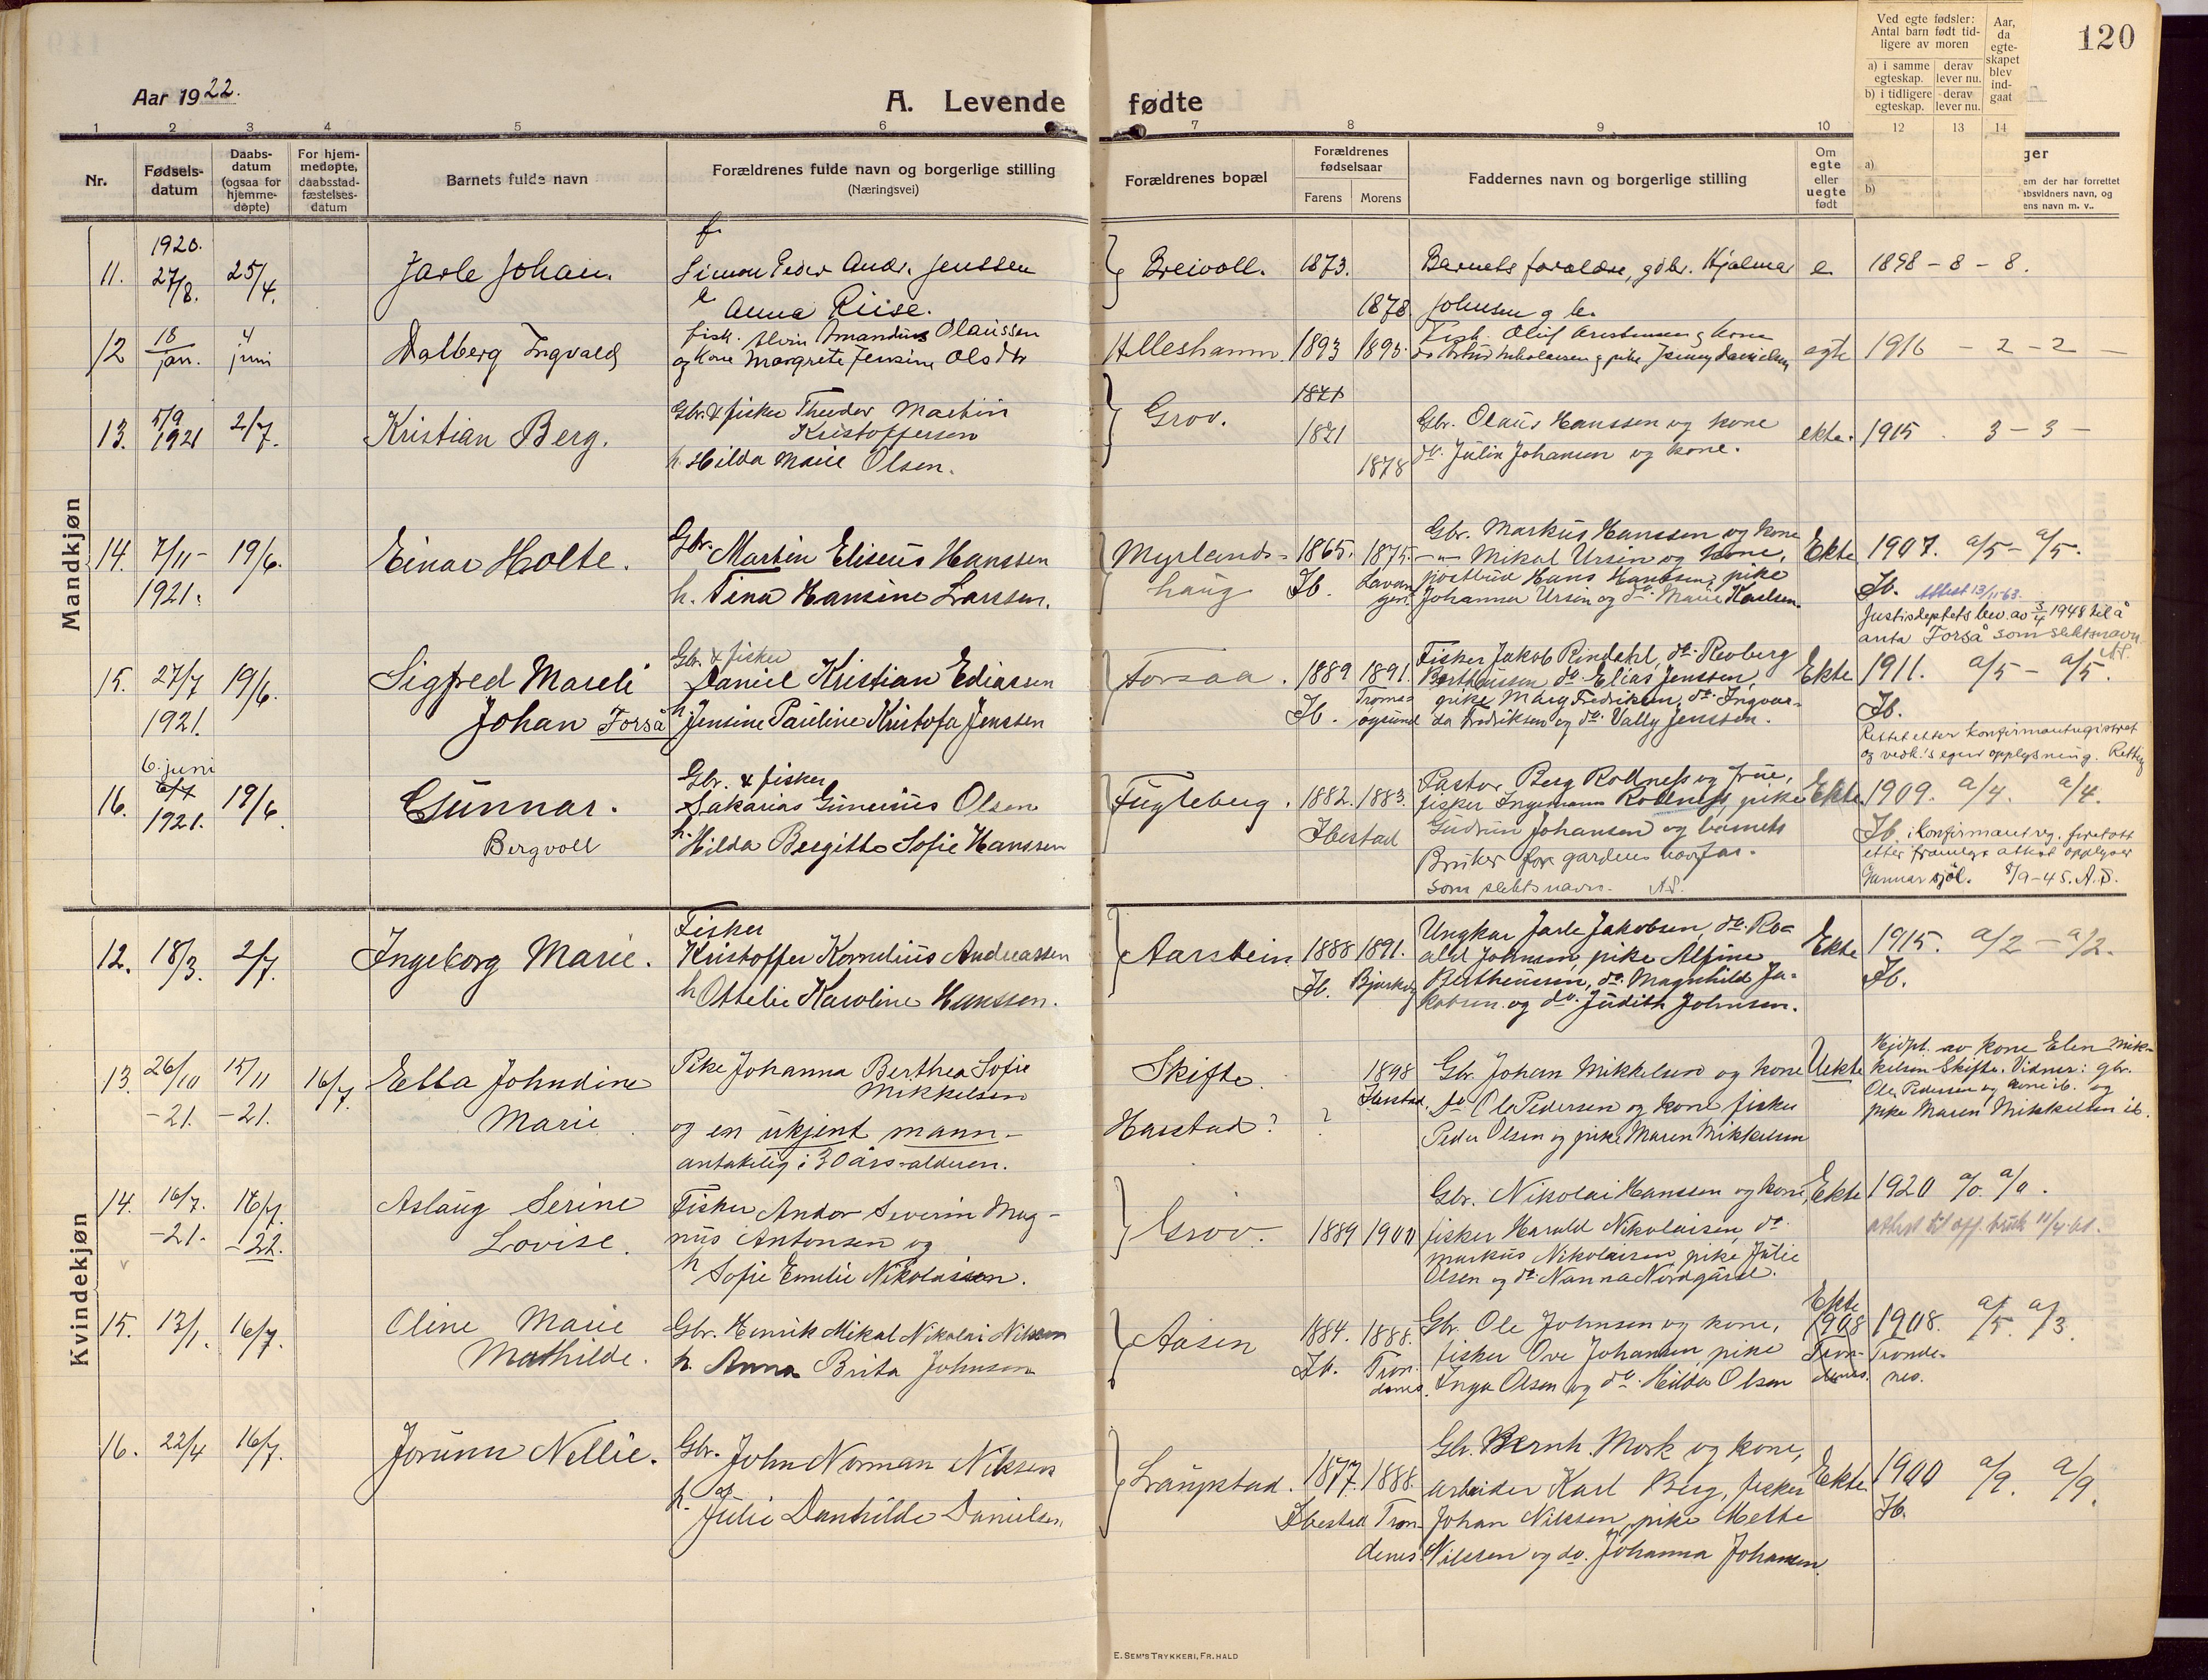 Aar 1922.
A. Levende fødte
120
Ved egte fødsler: Antal barn født tidligere av moren
Aar, da egteskapet blev indgaat
a) i samme egteskap. derav lever nu.
b) i tidligere egteskap. derav lever nu.
1 2 3 4 5 6 7 8 9 10 12 13 14
Nr.
Fødselsdatum
Daabsdatum (ogsaa for hjemmedøpte)
For hjemmedøpte, daabsstadfæstelsesdatum
Barnets fulde navn
Forældrenes fulde navn og borgerlige stilling
(Næringsvei)
Forældrenes bopæl
Forældrenes fødselsaar
Farens Morens
Faddernes navn og borgerlige stilling
Om egte eller uegte født
a)
b)
ger
em der har forrettet
absvidners navn, og
ens navn m. v..
Mandkjøn
11. 1920. 27/8. 25/4.
Jarle Johan.
f.
Simon Peder Andr. Jenssen
Anna Riise.
Breivoll. 1873. 1878.
Barnets forældre, gdbr. Hjalmar
Johnsen og
e. 1898 - 8 - 8.
12 18 jan. 4 juni
Dalberg Ingvald
fisk. Alvin Amandius Olaussen
og kone Margrete Jensine Olsdtr
Alleshamn. 1893 1893.
Fisk. Oluf og kone
egte 1916 - 2 - 2 -
13. 5/9 1921 2/7.
Kristian Berg.
Gbr. & fisker Theodor Martin
Kristoffersen
h. Hilda Marie Olsen.
Grov. 1871 1878
Gbr. Olaus Hanssen og kone
do. Julin Johansen og kone.
ekte. 1915 - 3 - 3 -
14. 7/11 - 1921. 19/6.
Einar Holte.
Gbr. Martin Eliseus Hanssen
h. Tina Hansine Larssen.
Myrlandshaug 1865. 1875.
Ib. Lavangen.
Gbr. Markus Hanssen og kone
- " - Mikal Ursin og kone,
postbud Hans Hanssen, pike
Johanna Ursin og do. Marie Karlsen.
Ekte 1907. a/5 - a/5.
Ib. Attest 13/11-63.
Justisdeptets bev. av 3/4 1948 til å
anta Forså som slektsnavn
A.S.
15. 27/7 1921. 19/6.
Sigfred Mareli
Johan Forså
Gbr. & fisker
Daniel Kristian Ediassen
h. Jensine Pauline Kristofa Jenssen
Forsaa. 1889 1891.
Ib. Tromsøysund
Fisker Jakob Rindahl, do. Roberg
Bertheussen do. Elias Jenssen,
pike Mary Fredriksen, do. Ingvarda
Fredriksen og do. Vally Jenssen.
Ekte 1911. a/5 - a/5.
Ib.
Rettet etter konfirmantregistret
og vedk.'s egen opplysning.
16. 6. juni 1921. 19/6.
Gunnar.
Bergvoll
Gbr. & fisker
Sakarias Gunerius Olsen
h. Hilda Bergitte Sofie Hanssen
Fugleberg. 1882. 1883.
Ibestad
Pastor Berg Rollness og frue,
fisker Ingemann Rollness, pike
Gudrun Johansen og barnets
Bruker far gardens navn
som slektsnavn. A.S.
Ekte 1909. a/4. a/4.
Ib. i konfirmant reg. foretatt
etter framlagt attest opplyser
Gunnar sjøl. 8/9-45. A.S.
Kvindekjøn
12. 18/3. 2/7.
Ingeborg Marie.
Fisker
Kristoffer Kornelius Andreassen
h. Ottelie Karoline Hanssen.
Aarstein 1888 1891.
Ib. Bjarkøy
Ungkar Jarle Jakobsen, do. Roald
Johnsen, pike Alfine
Bertheussen, do. Magnhild Jakobsen
og do. Judith Johnsen.
Ekte 1915. a/2 - a/2.
Ib.
13. 26/10 -21. 15/11 -21. 16/7.
Ella Johndine
Marie
Pike Johanna Berthea Sofie
Mikkelsen
og en ukjent mann -
antakelig i 30 års-alderen.
Skifte. 1898 Ibestad.
Harstad? ?
Gbr. Johan Mikkelsen og kone
do Ole Pedersen og kone fisker
Peder Olsen og pike Maren Mikkelsen
Uekte
Hjdpt. av kone Elen Mikkelsen
Skifte. Vidner: gbr.
Ole Pedersen og kone ib. og
pike Maren Mikkelsen ib.
14. 16/7. -21. 16/7. -22.
Aslaug Serine
Lovise.
Fisker Andor Severin Magnus
Antonsen og
h. Sofie Emelie Nikolaisen.
Grov. 1889 1900
Gbr. Nikolai Hanssen og kone,
fisker Harald Nikolaisen, do.
Markus Nikolaisen, pike Julie
Olsen og do. Nanna Nordgård.
Ekte 1920 a/0. a/0.
attest til off. bruk
15. 13/1. 16/7.
Oline Marie
Mathilde.
Gbr. Henrik Mikal Nikolai Nilssen
h. Anna Brita Johnsen
Aasen 1884. 1888.
Ib. Trondenes.
Gbr. Ole Johnsen og kone,
fisker Ove Johansen, pike
Inga Olsen og do. Hilda Olsen
Ekte 1908 Trondenes.
1908. a/5. a/3.
Trondenes.
16. 22/4 16/7.
Jorunn Nellie.
Gbr. John Norman Nilssen
og
h. Julie Danhilde Danielsen
Laupstad. 1877. 1888.
Ibestad Trondenes
Gbr. Bernh. Mork og kone,
arbeider Karl Berg, fisker
Johan Nilssen, pike Mette
Nilssen og do. Johanna Johansen.
Ekte 1900 a/9. a/9.
Ib.
E. SEM'S TRYKKERI, FR.HALD